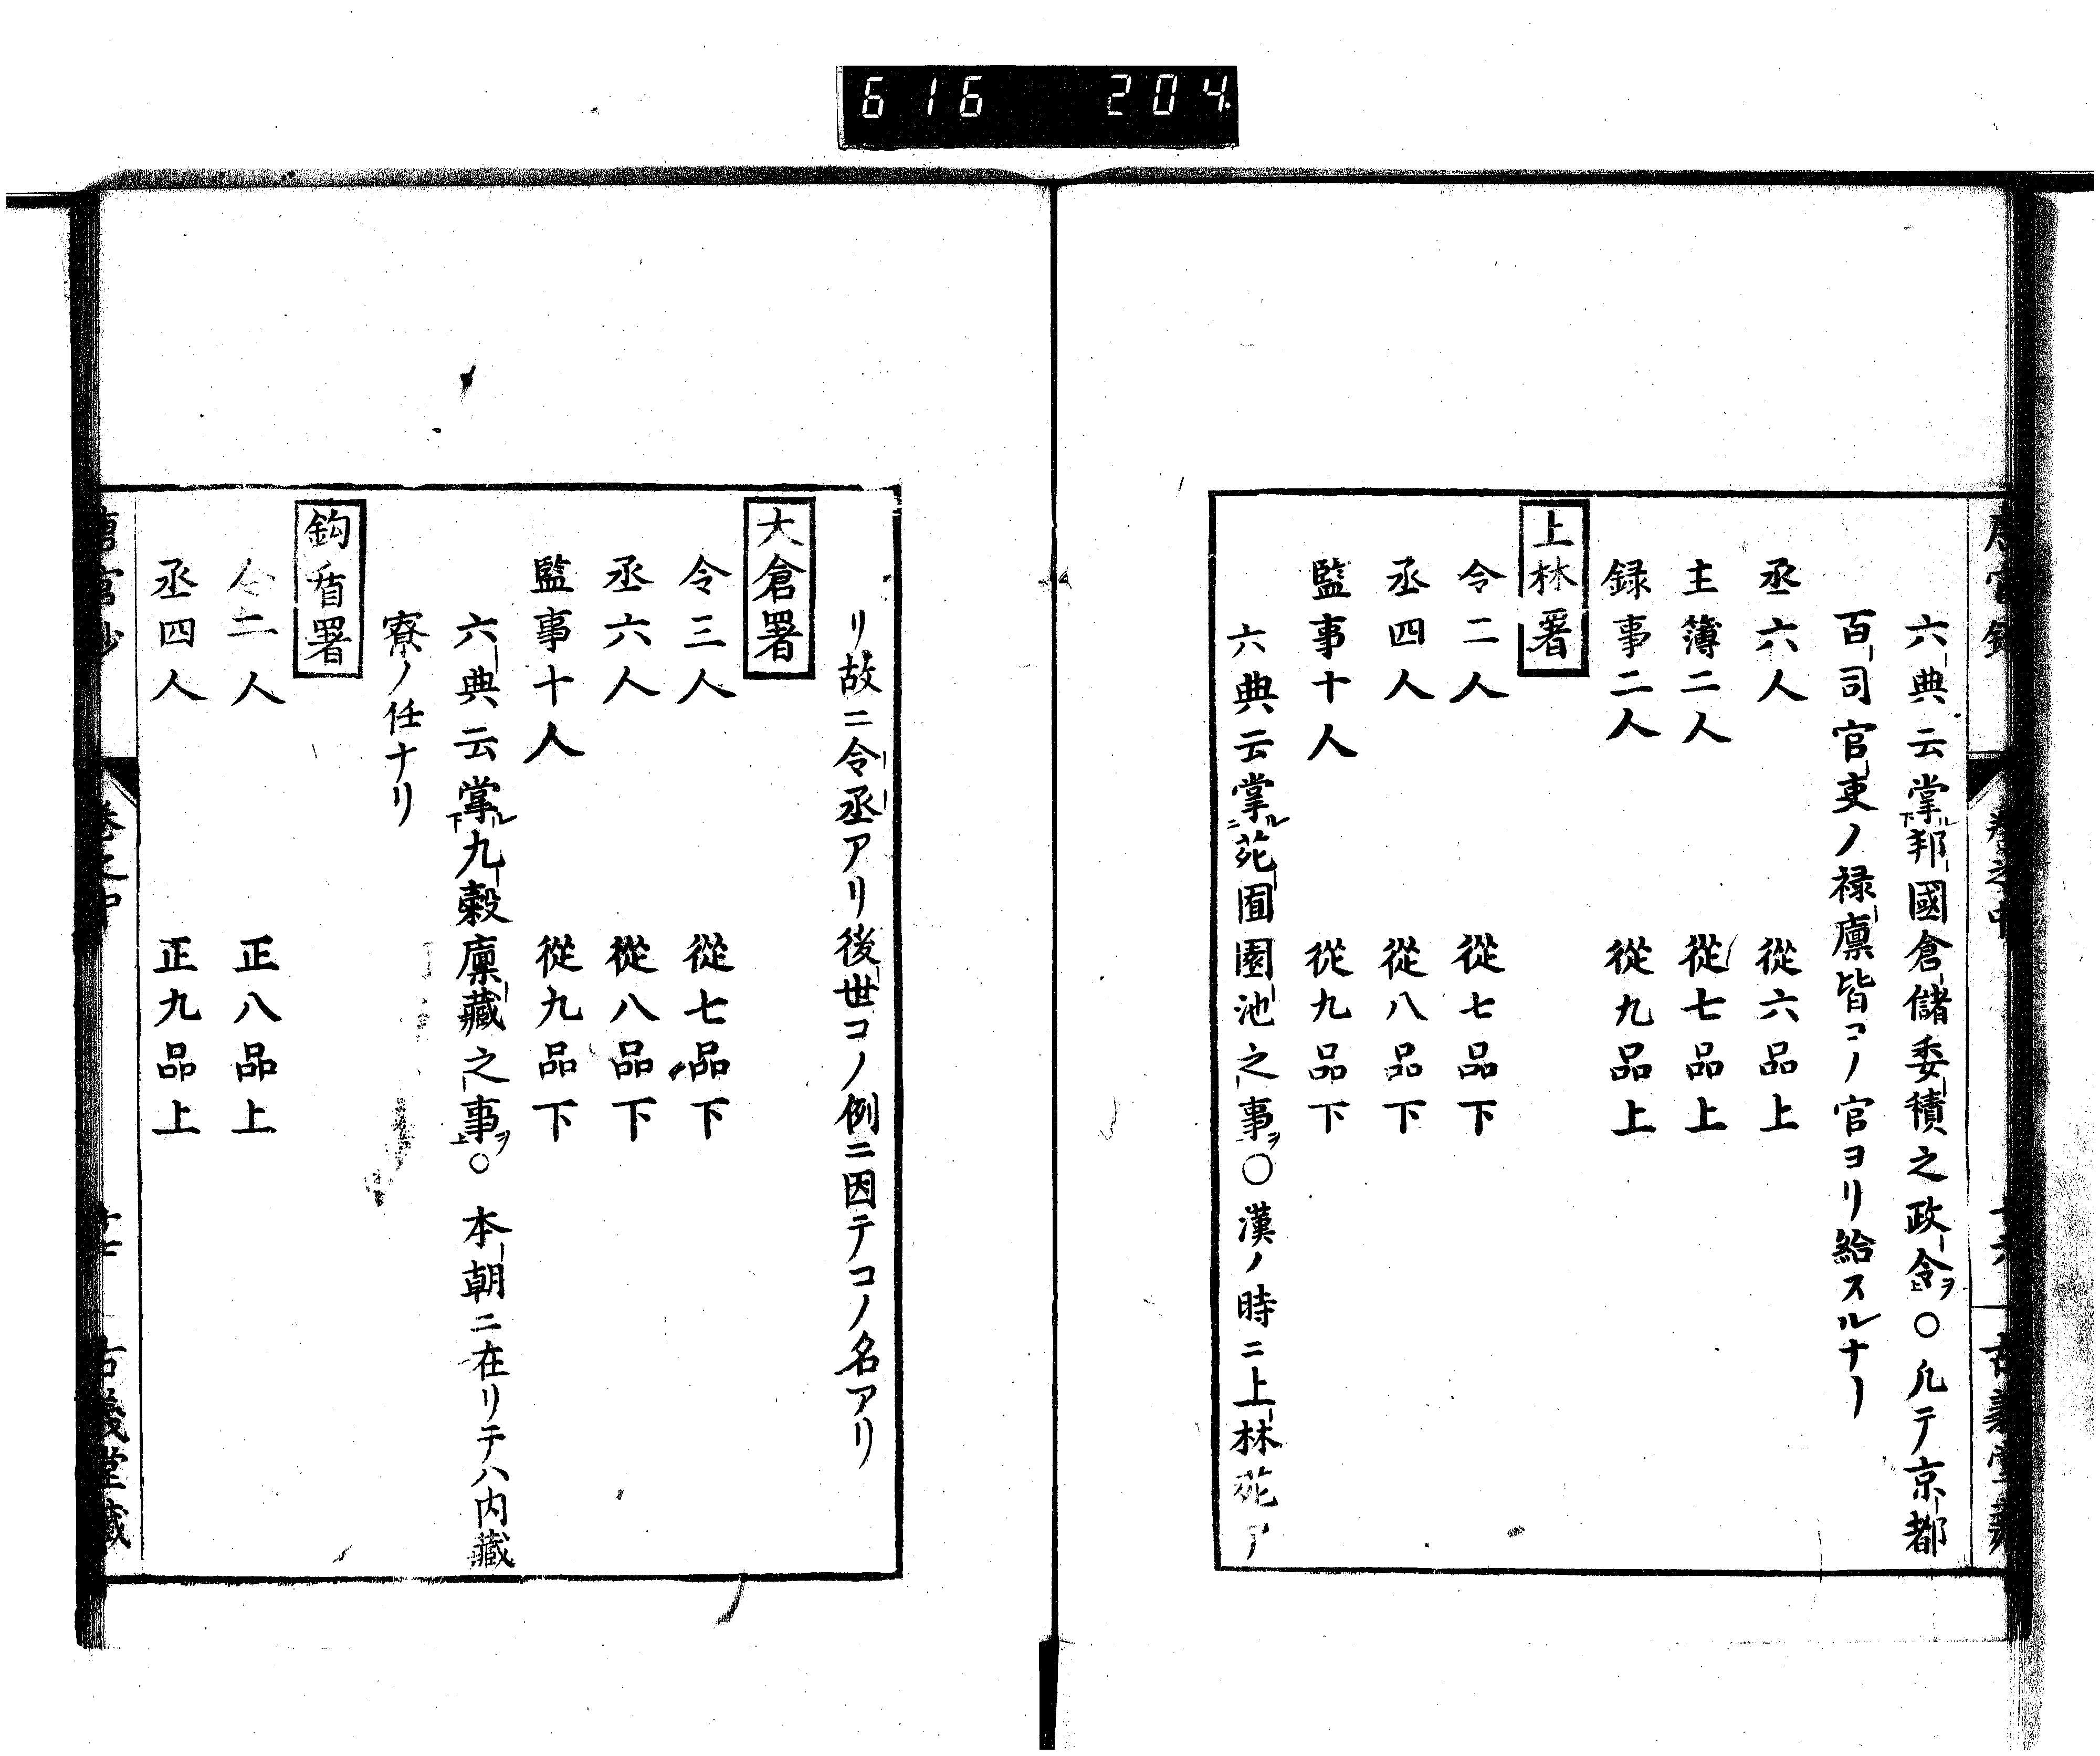 616 204
六典云掌ル下邦國倉儲委積之政令ヲ上〇凡テ京都
百司官吏ノ禄廩皆コノ官ヨリ給スルナリ
丞六人 從六品上
主簿二人 從七品上
録事二人 從九品上
上林署
令二人 從七品下
丞四人 從八品下
監事十人 從九品下
六典云掌ル二苑囿園池之事ヲ〇漢ノ時ニ上林苑ア
リ故ニ令丞アリ後世コノ例ニ因テコノ名アリ
大倉署
令三人 從七品下
丞六人 從八品下
監事十人 從九品下
六典云掌ル下九穀廩藏之事ヲ上〇本朝ニ在リテハ内藏
寮ノ任ナリ
鈎盾署
令二人 正八品上
丞四人 正九品上
卷之中
古義堂藏